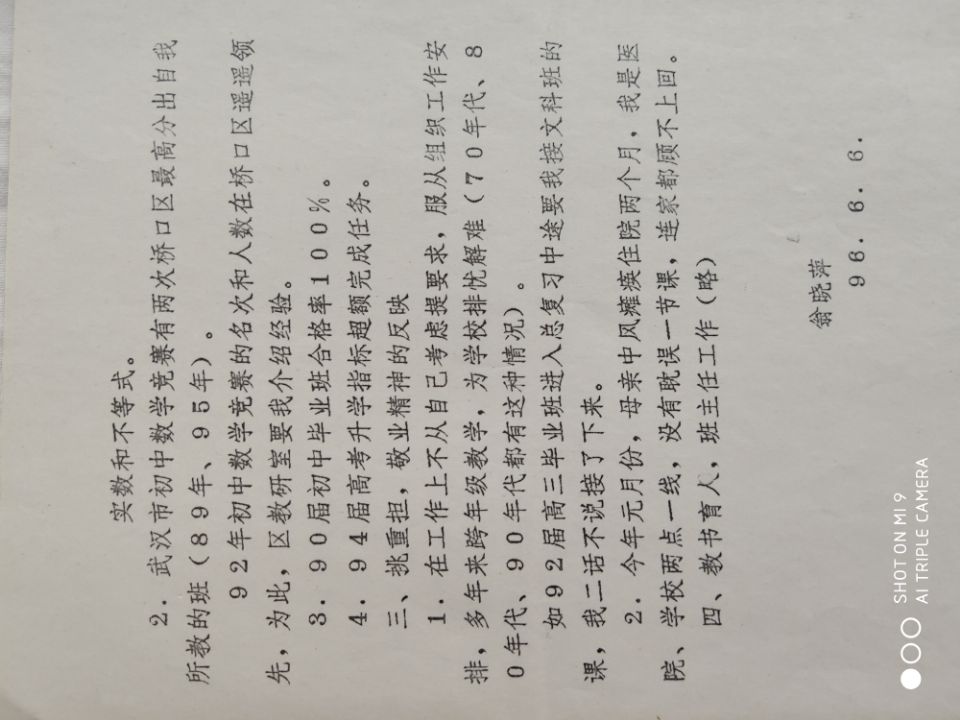 实数和不等式。
2．武汉市初中数学竞赛有两次桥口区最高分出自我
所教的班（89年、95年）。
92年初中数学竞赛的名次和人数在桥口区遥遥领
先，为此，区教研室要我介绍经验。
3．90届初中毕业班合格率100%。
4．94届高考升学指标超额完成任务。
三、挑重担，敬业精神的反映
1．在工作上不从自己考虑提要求，服从组织工作安
排，多年来跨年级教学，为学校排忧解难（70年代、8
0年代、90年代都有这种情况）。
如92届高三毕业班进入总复习中途要我接文科班的
课，我二话不说接了下来。
2．今年元月份，母亲中风瘫痪住院两个月，我是医
院、学校两点一线，没有耽误一节课，连家都顾不上回。
四、教书育人，班主任工作（略）
翁晓萍
96．6．6．
SHOT ON MI 9
AI TRIPLE CAMERA